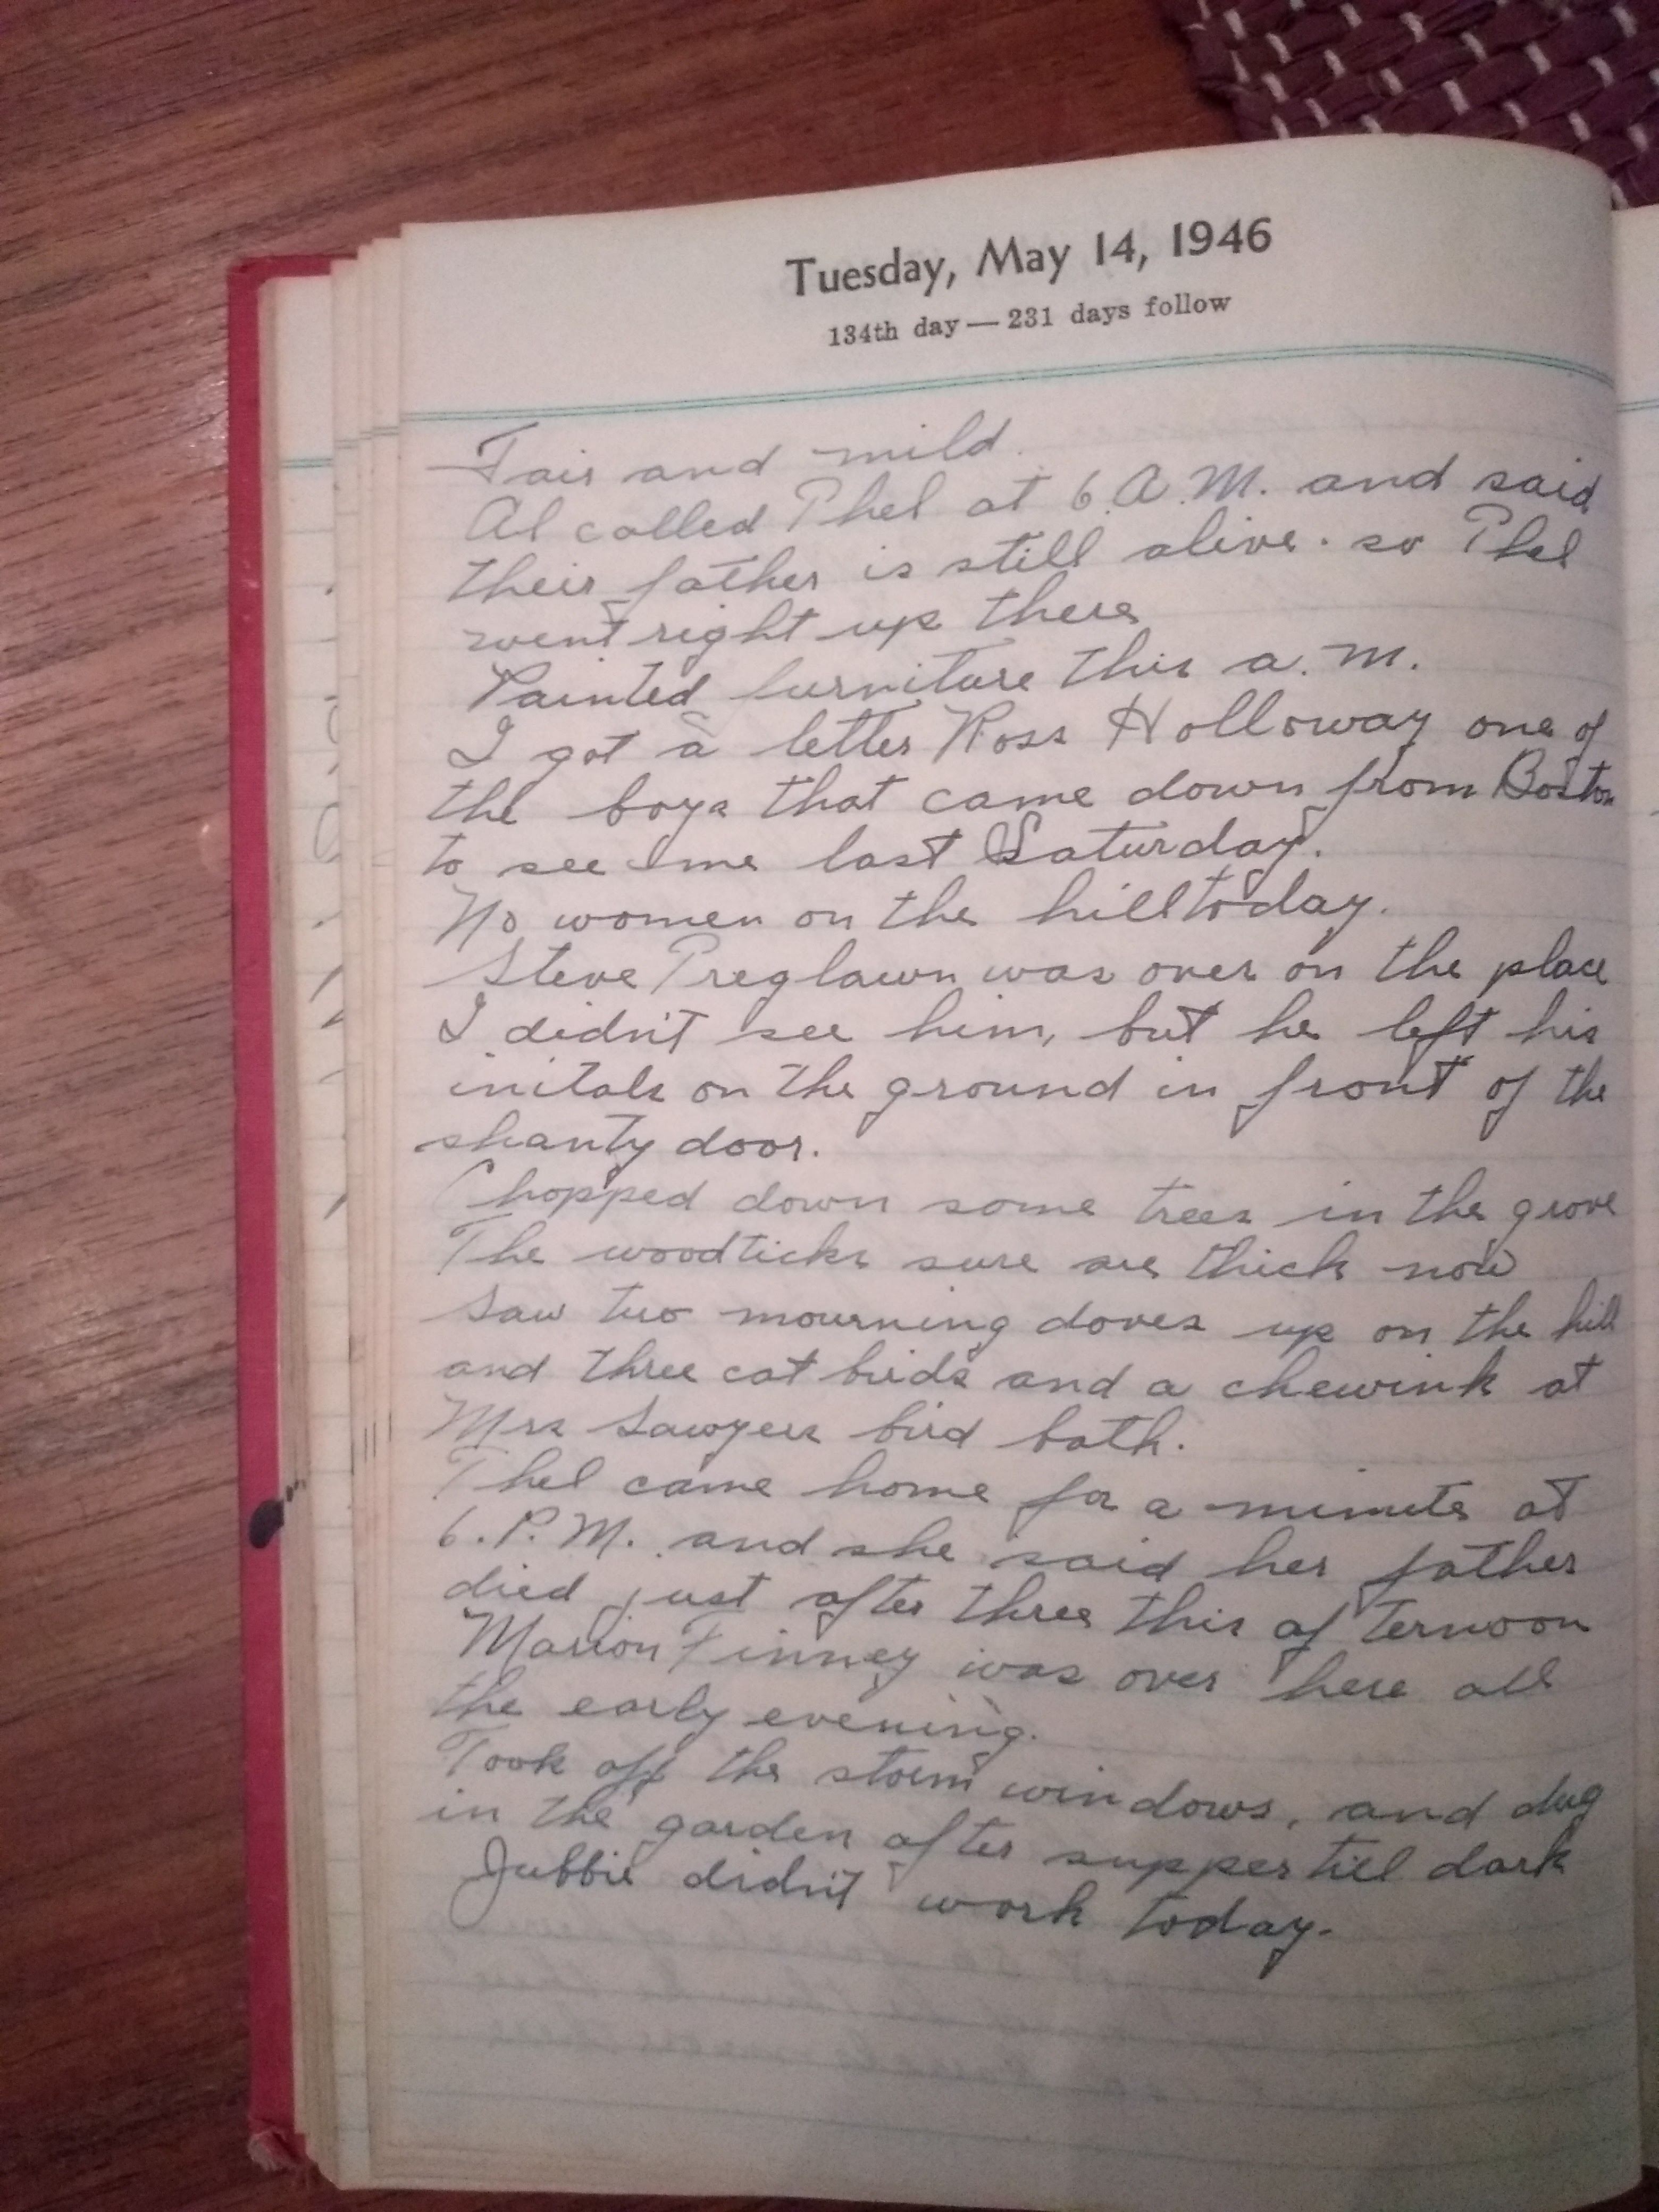 Tuesday, May 14, 1946
134th day — 231 days follow
Fair and mild.
Al called Phel at 6.A.M. and said
their father is still alive. so Phel
went right up there
Painted furniture this a.m.
I got a letter Ross Holloway one of
the boys that came down from Boston
to see me last Saturday.
No women on the hill today.
Steve Preglawn was over on the place
I didn't see him, but he left his
initals on the ground in front of the
shanty door.
Chopped down some trees in the grove
The woodticks sure are thick now
Saw two mourning doves up on the hill
and three cat birds and a chewink at
Mrs Sawyers bird bath.
Phel came home for a minute at
6.P.M. and she said her father
died just after three this afternoon
Marion Finney was over here all
the early evening.
Took off the storm windows, and dug
in the garden after supper till dark
Jubbie didn't work today.